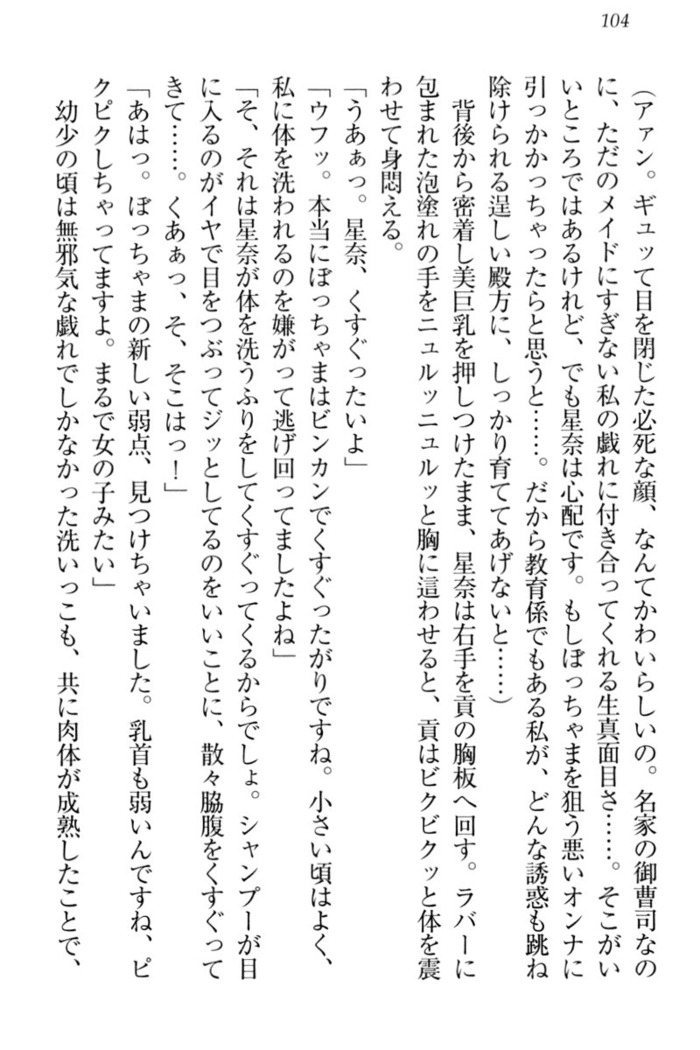 104
（アァン。ギュッて目を閉じた必死な顔、なんてかわいらしいの。名家の御曹司なの
に、ただのメイドにすぎない私の戯れに付き合ってくれる生真面目さ……。そこがい
いところではあるけれど、でも星奈は心配です。もしぼっちゃまを狙う悪いオンナに
引っかかっちゃったらと思うと……。だから教育係でもある私が、どんな誘惑も跳ね
除けられる逞しい殿方に、しっかり育ててあげないと……）
　背後から密着し美巨乳を押しつけたまま、星奈は右手を貢の胸板へ回す。ラバーに
包まれた泡塗れの手をニュルッニュルッと胸に這わせると、貢はビクビクッと体を震
わせて身悶える。
「うあぁっ。星奈、くすぐったいよ」
「ウフッ。本当にぼっちゃまはビンカンでくすぐったがりですね。小さい頃はよく、
私に体を洗われるのを嫌がって逃げ回ってましたよね」
「そ、それは星奈が体を洗うふりをしてくすぐってくるからでしょ。シャンプーが目
に入るのがイヤで目をつぶってジッとしてるのをいいことに、散々脇腹をくすぐって
きて……。くあぁっ、そ、そこはっ！」
「あはっ。ぼっちゃまの新しい弱点、見つけちゃいました。乳首も弱いんですね、ピ
クピクしちゃってますよ。まるで女の子みたい」
　幼少の頃は無邪気な戯れでしかなかった洗いっこも、共に肉体が成熟したことで、